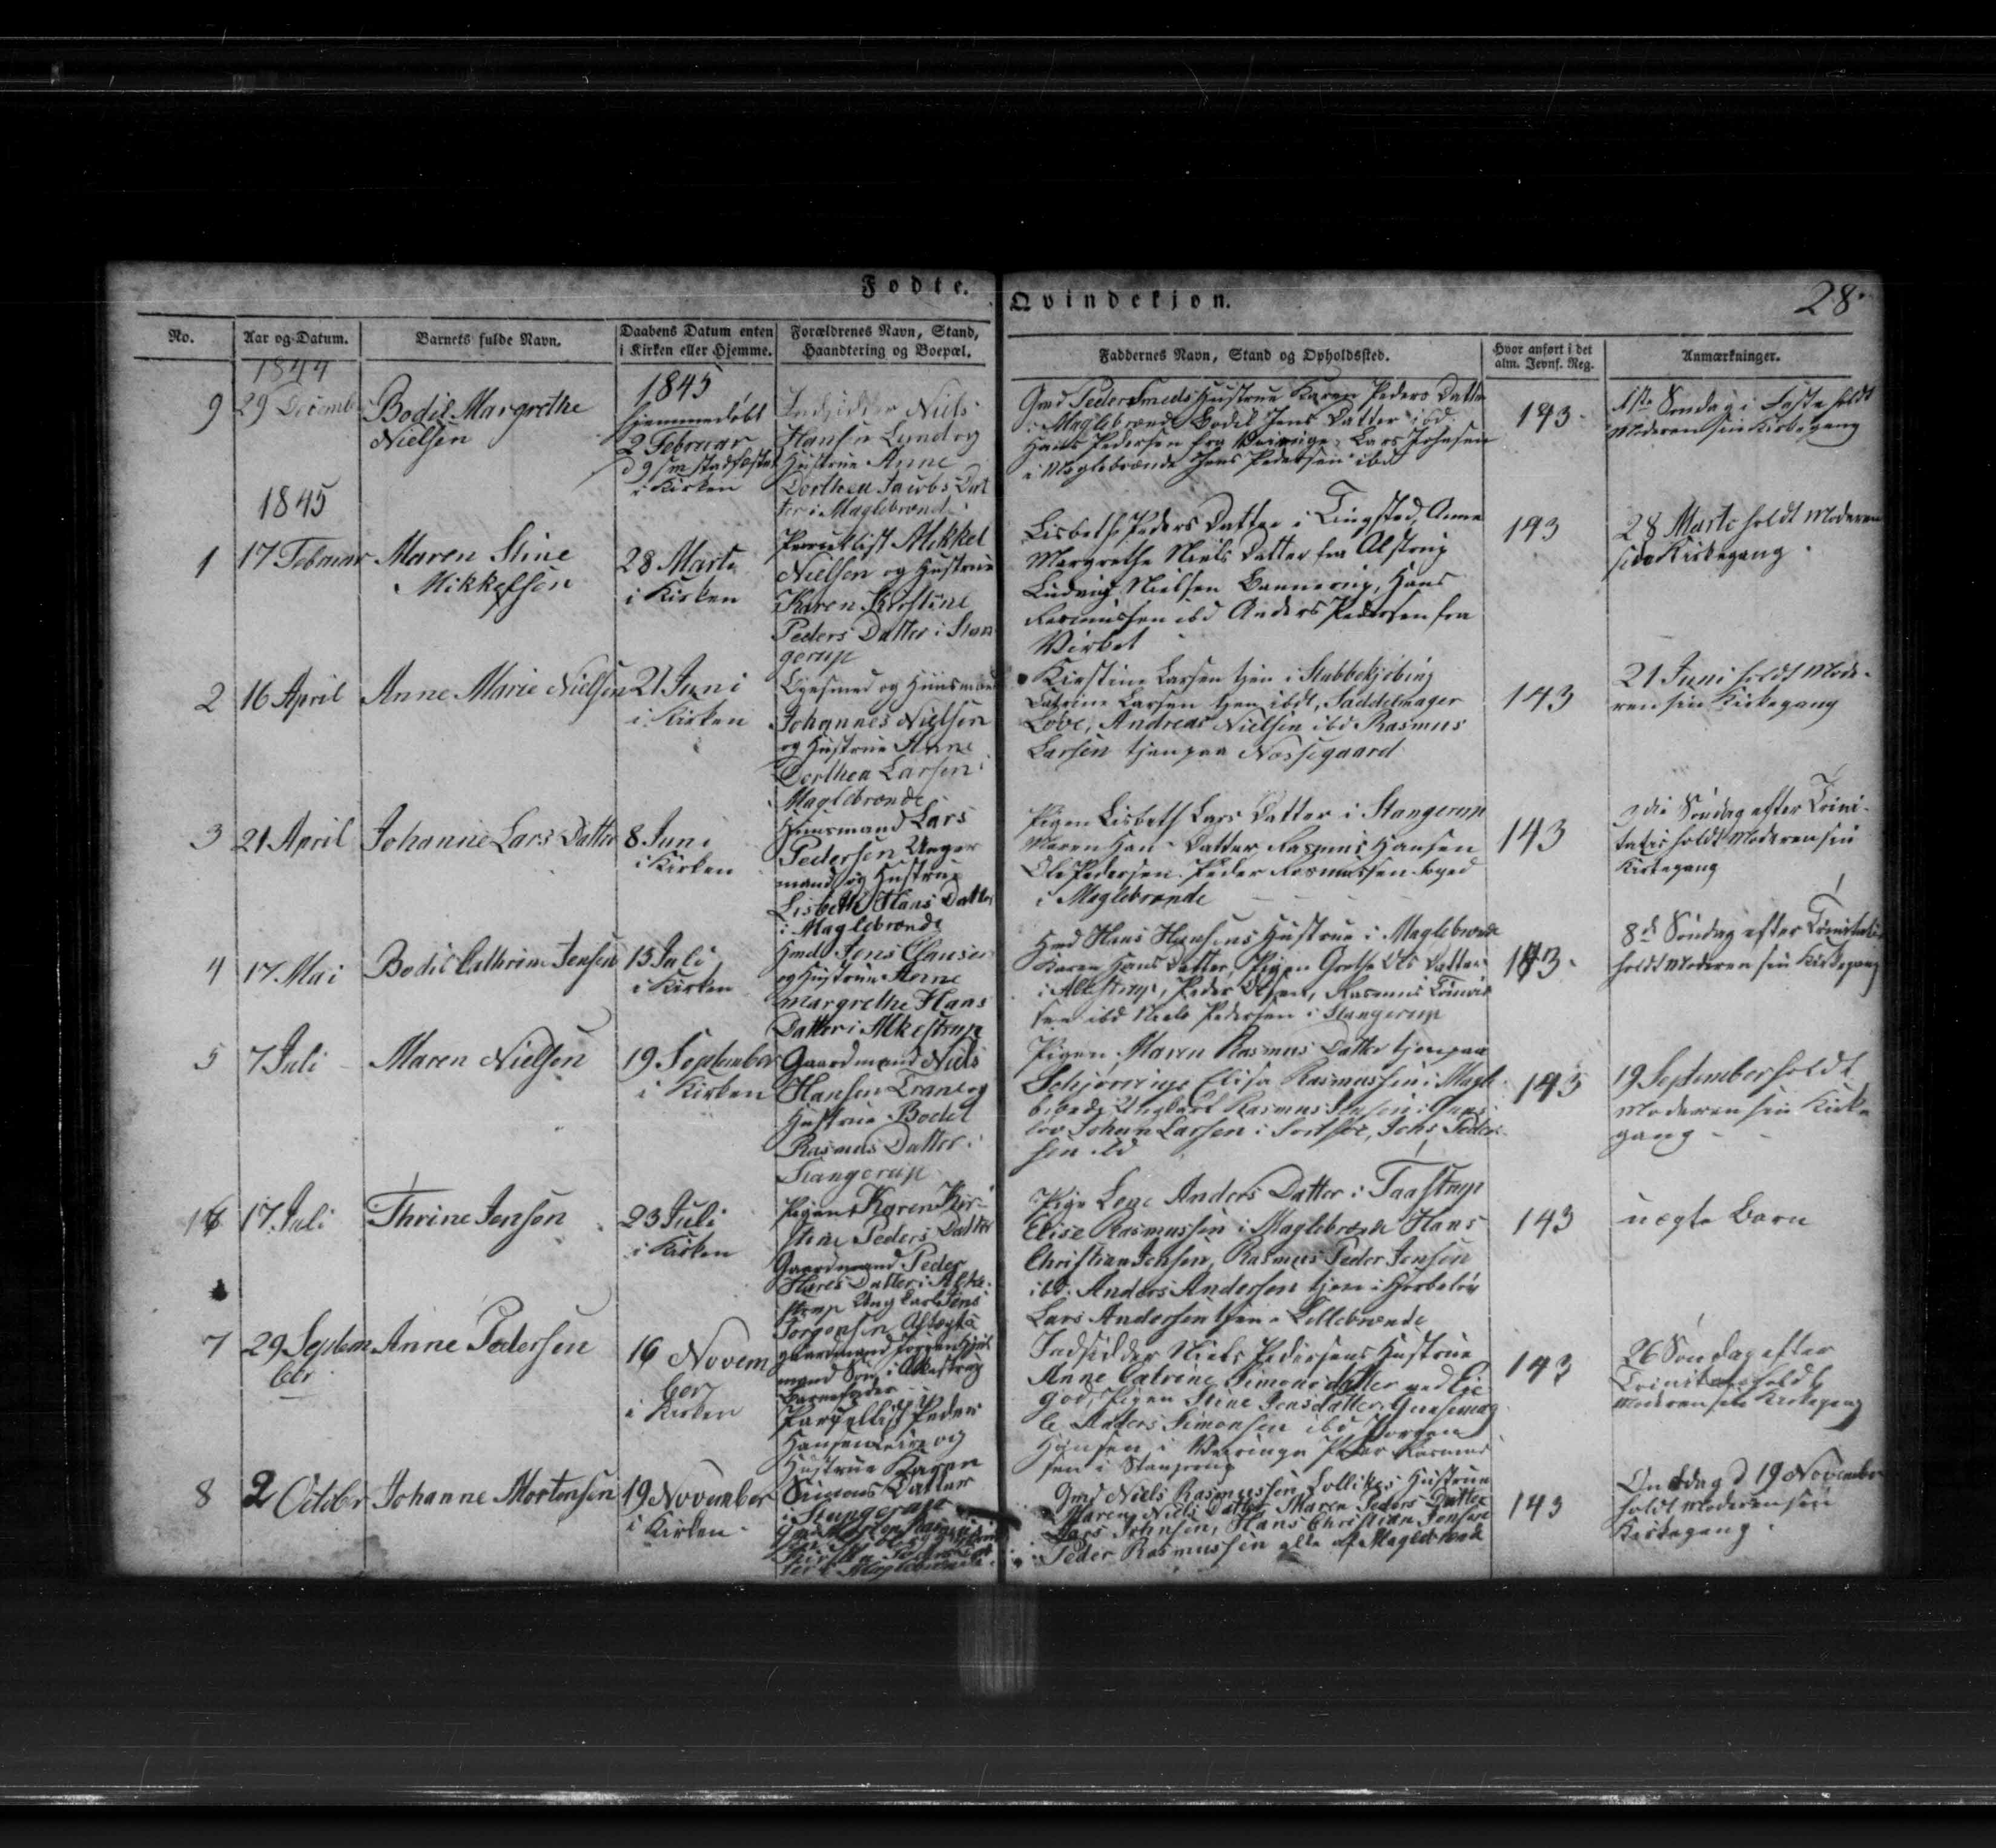 Fødte.
Qvindekjøn.
28
No.
Aar og Datum.
Barnets fulde Navn.
Daabens Datum enten
i Kirken eller Hjemme.
Forældrenes Navn, Stand,
Haandtering og Boepæl.
Faddernes Navn, Stand og Opholdssted.
Hvor anført i det
alm. Jevnf. Reg.
Anmærkninger.
1844
9
29 Decemb
Bodil Margrethe
Nielsen
1845
hjemmedøbt
2 Februar
i Kirken
Indsidder Niels
Hansen Lund og
Hustrue Anne
Dorthea Jacobs Dat
ter i Maglebrende
Gmd Peder Smeds Hustrue Karen Peders Datter
i Maglebrende Bodil Jens Datter ibd
Hans Pedersen fra Lars Johnsen
i Maglebrende Jens Pedersen ibd
143
1ste Søndag i Faste holdt
Moderen sin Kirkegang
1845
1
17 Februar
Maren Stine
Mikkelsen
28 Marts
i Kirken
Parcellist Mikkel
Nielsen og Hustrue
Karen Kirstine
Peders Datter i Stan
gerup
Lisbeth Peders Datter i Tingsted, Anne
Margrethe Niels Datter fra Alstrup
Ludvig Nielsen Bannerup, Hans
Rasmussen ibd Anders Pedersen fra
Virket
193
28 Marts holdt Moderen
sin Kirkegang
2
16 April
Anne Marie Nielsen
21 Juni
i Kirken
og Huusmand
Johannes Nielsen
og Hustrue Anne
Dorthea Larsen i
Maglebrende
Kirstine Larsen tjen i Stubbekjøbing
Catrine Larsen tjen ibdt, Saddelmager
Love, Andreas Nielsen ibd Rasmus
Larsen tjen paa Næssegaard
143
21 Juni holdt Mode-
ren sin Kirkegang
3
21 April
Johanne Lars Datter
8 Juni
i Kirken
Huusmand Lars
Pedersen Unger
mand og Hustrue
Lisbeth Hans Datter
i Maglebrende
Pigen Lisbeth Lars Datter i Stangerup
Maren Han- Datter Rasmus Hansen
Ole Pedersen Peder Rasmussen
i Maglebrende
143
3die Søndag efter Trini-
tatis holdt Moderen sin
Kirkegang
4
17 Mai
Bodil Cathrine Jensen
13 Juli
i Kirken
Hmd Jens Clausen
og Hustrue Anne
Margrethe Hans
Datter i Alkestrup
Hmd Hans Hansens Hustrue i Maglebrende
Karen Hans Datter, Pigen Grethe Ols Datter
i Alkestrup, Peder Olsen, Rasmus
sen ibd Niels Pedersen i Stangerup
143
8de Søndag efter Trinitatis
holdt Moderen sin Kirkegang
5
7 Juli
Maren Nielsen
19 September
i Kirken
Gaardmand Niels
Hansen Trane og
Hustrue Bodil
Rasmus Datter i
Stangerup
Pigen Maren Rasmus Datter tjen paa
Elisa Rasmussen i Magle
Ungkarl Rasmus
Johan Larsen i Sortsøe, Jens Peder
sen ibd
143
19 September holdt
Moderen sin Kirke
gang
6
17 Juli
Thrine Jensen
23 Juli
i Kirken
Pigen Karen Kir-
stine Peders Datter
Gaardmand Peder
Hares Datter i Alke-
strup Ung Karl Jens
Jørgensen Aftægts
gaardmand Jørgen
mand Søn i Alkestrup
Barnefader
Pige Lene Anders Datter i Taastrup
Elise Rasmussen i Maglebrende Hans
Christian Jensen, Rasmus Peder Jensen
ibd. Anders Andersen tjen i Horbelev
Lars Andersen tjen i Lillebrende
143
uægte Barn
7
29 Septem
ber
Anne Pedersen
16 Novem
ber
i Kirken
Parcellist Peder
Hansen og
Hustrue Karen
Simons Datter
i Stangerup
Indsidder Niels Pedersens Hustrue
Anne Catrine Simonsdatter ved Eje
god, Pigen Stine Jensdatter,
Anders Simonsen ibd Jørgen
Hansen i Peder Rasmus
sen i Stangerup
143
26 Søndag efter
Trinitatis holdt
Moderen sin Kirkegang
8
2 October
Johanne Mortensen
19 November
i Kirken
Gmd Niels Rasmussen Lollikes Hustrue
Maren Niels Datter Maren Peders Datter
Lars Johnsen, Hans Christian Jensen
Peder Rasmussen alle af Maglebrende
143
Onsdag d 19 November
holdt Moderen sin
Kirkegang